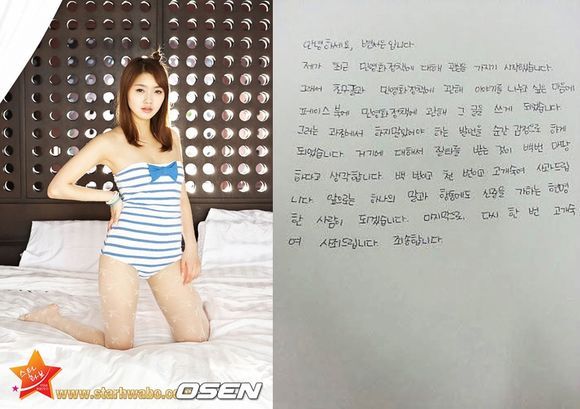 안녕하세요, 변서은입니다
제가 최근 민영화정책에 대해 관심을 가지기 시작했습니다.
그래서 친구들과 민영화정책에 관해 이야기를 나누고 싶은 마음에
페이스북에 민영화정책에 관해 그 글을 쓰게 되었습니다.
그러는 과정에서 하지말았어야 하는 발언을 순간 감정으로 하게
되었습니다. 거기에 대해서 질타를 받는 것이 백번 마땅
하다고 생각합니다. 백 번이고 천 번이고 고개숙여 사과드립
니다. 앞으로는 하나의 말과 행동에도 신중을 가하는 현명
한 사람이 되겠습니다. 마지막으로, 다시 한 번 고개숙
여 사죄드립니다. 죄송합니다.
스타
화보
www.starhwabo.co
OSEN